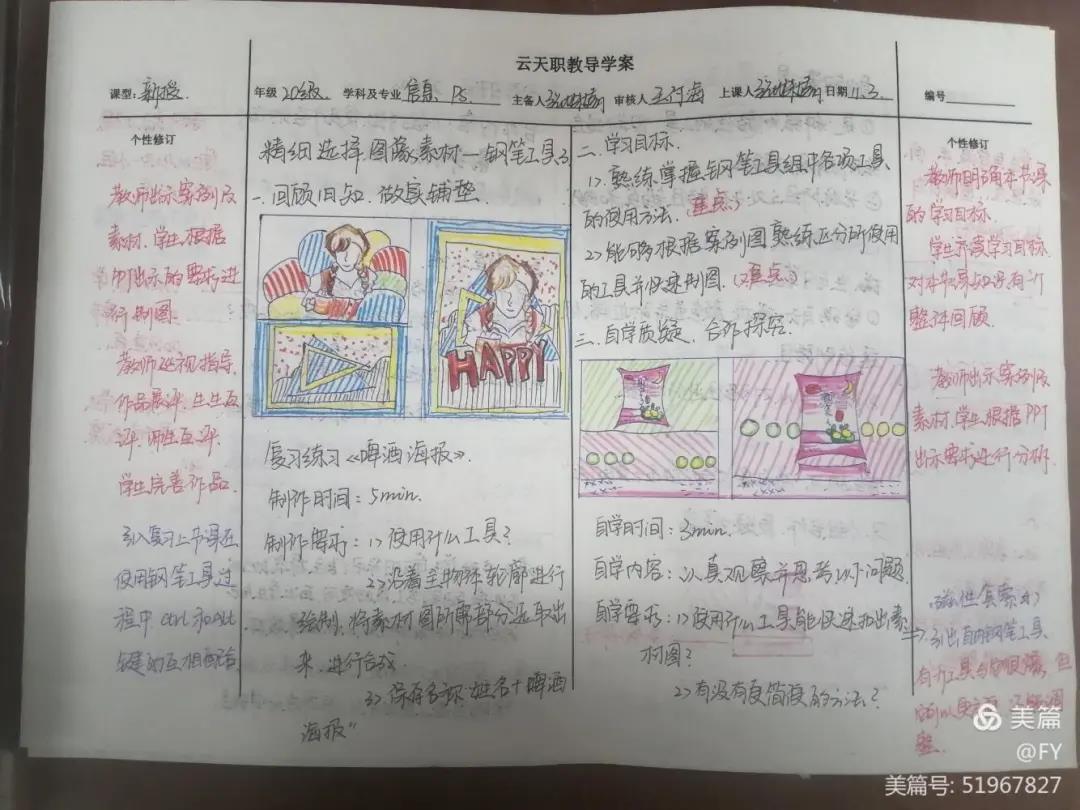 云天职教导学案
课型：新授.
年级 20级.
学科及专业 信息、PS
主备人
审核人
上课人
日期 11.3.
编号
个性修订
教师出示案例及
素材、学生根据
PPT出示的要求进
行制图.
教师巡视指导.
作品展评.生生互
评.师生互评.
学生完善作品.
引入复习上节课在
使用钢笔工具过
程中 ctrl 和 Alt
键的互相配合
精细选择图像素材——钢笔工具
一.回顾旧知、做实铺垫.
HAPPY
复习练习《啤酒海报》.
制作时间：5min.
制作要求：1>使用什么工具？
2>沿着主物体轮廓进行
绘制、将素材图所需部分选取出
来、进行合成.
3>保存名称"姓名+啤酒
海报"
二、学习目标.
1>.熟练掌握钢笔工具组中各项工具
的使用方法.（重点）
2>能够根据案例图熟练区分所使用
的工具并快速制图.（难点）
三.自学质疑、合作探究.
自学时间：3min.
自学内容：认真观察并思考以下问题.
自学要求：1>使用什么工具能快速抠出素
材图？
2>有没有更简便的方法？
个性修订
教师明确本节课
的学习目标.
学生齐读学习目标
对本节课知识有个
整体回顾.
教师出示案例及
素材.学生根据PPT
出示要求进行分析.
磁性套索
⇒引出自由钢笔工具、
美篇
@FY
美篇号: 51967827